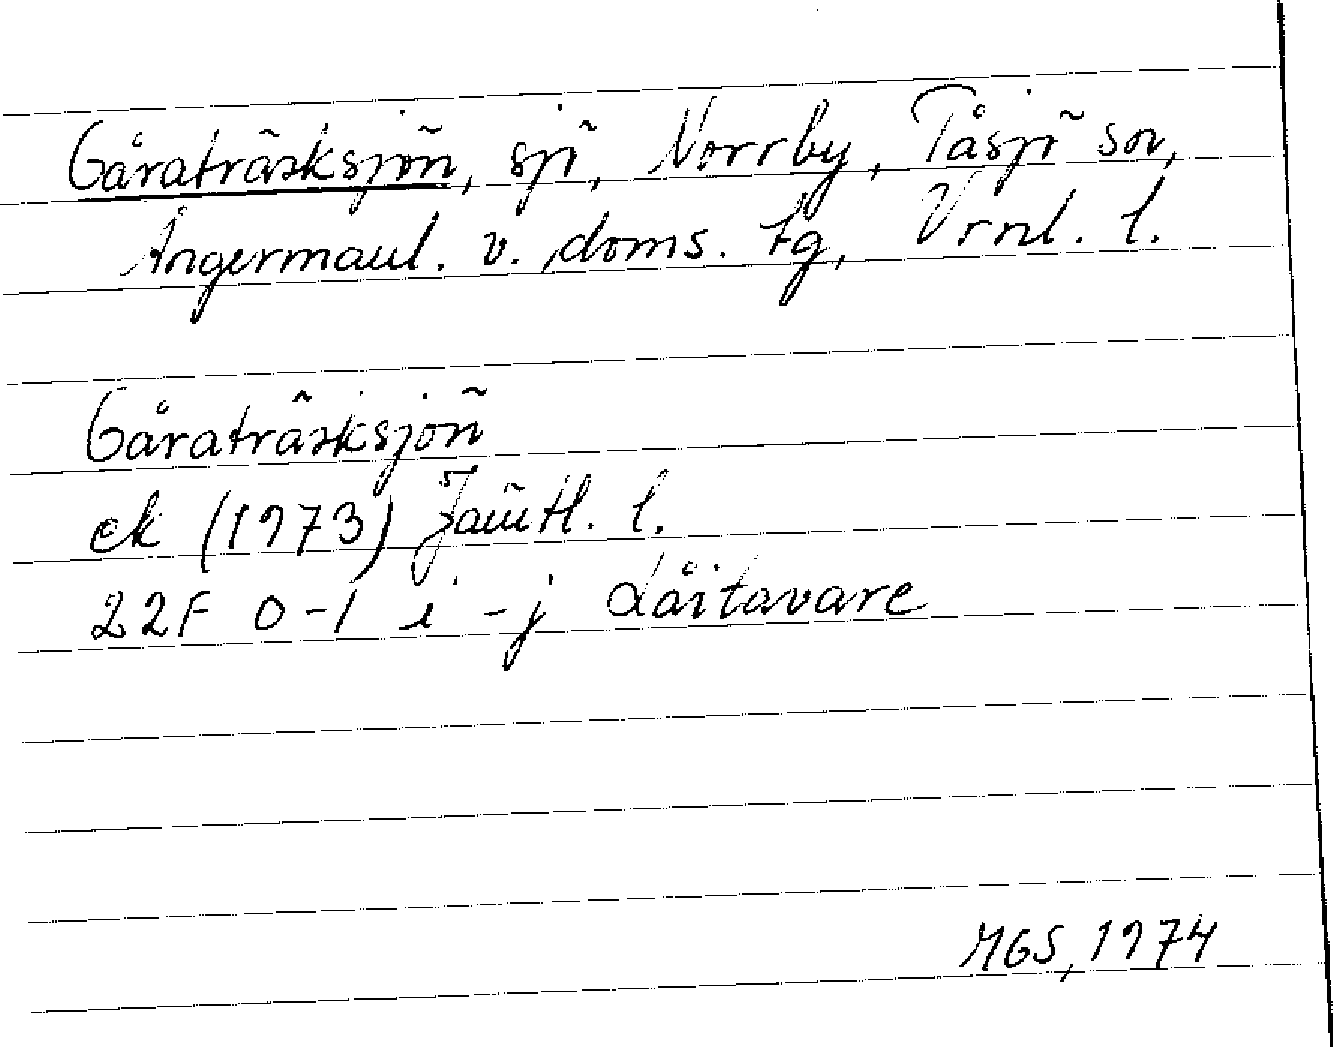 Gåraträsksjön, sjö, Norrby, Tåsjö sn,
Ångermanl. v. doms. tg, Vrnl. l.
Gåraträsksjön
ek (1973) Jämtl. l.
22F 0-1 i-j Dåitavare
MGS, 1974